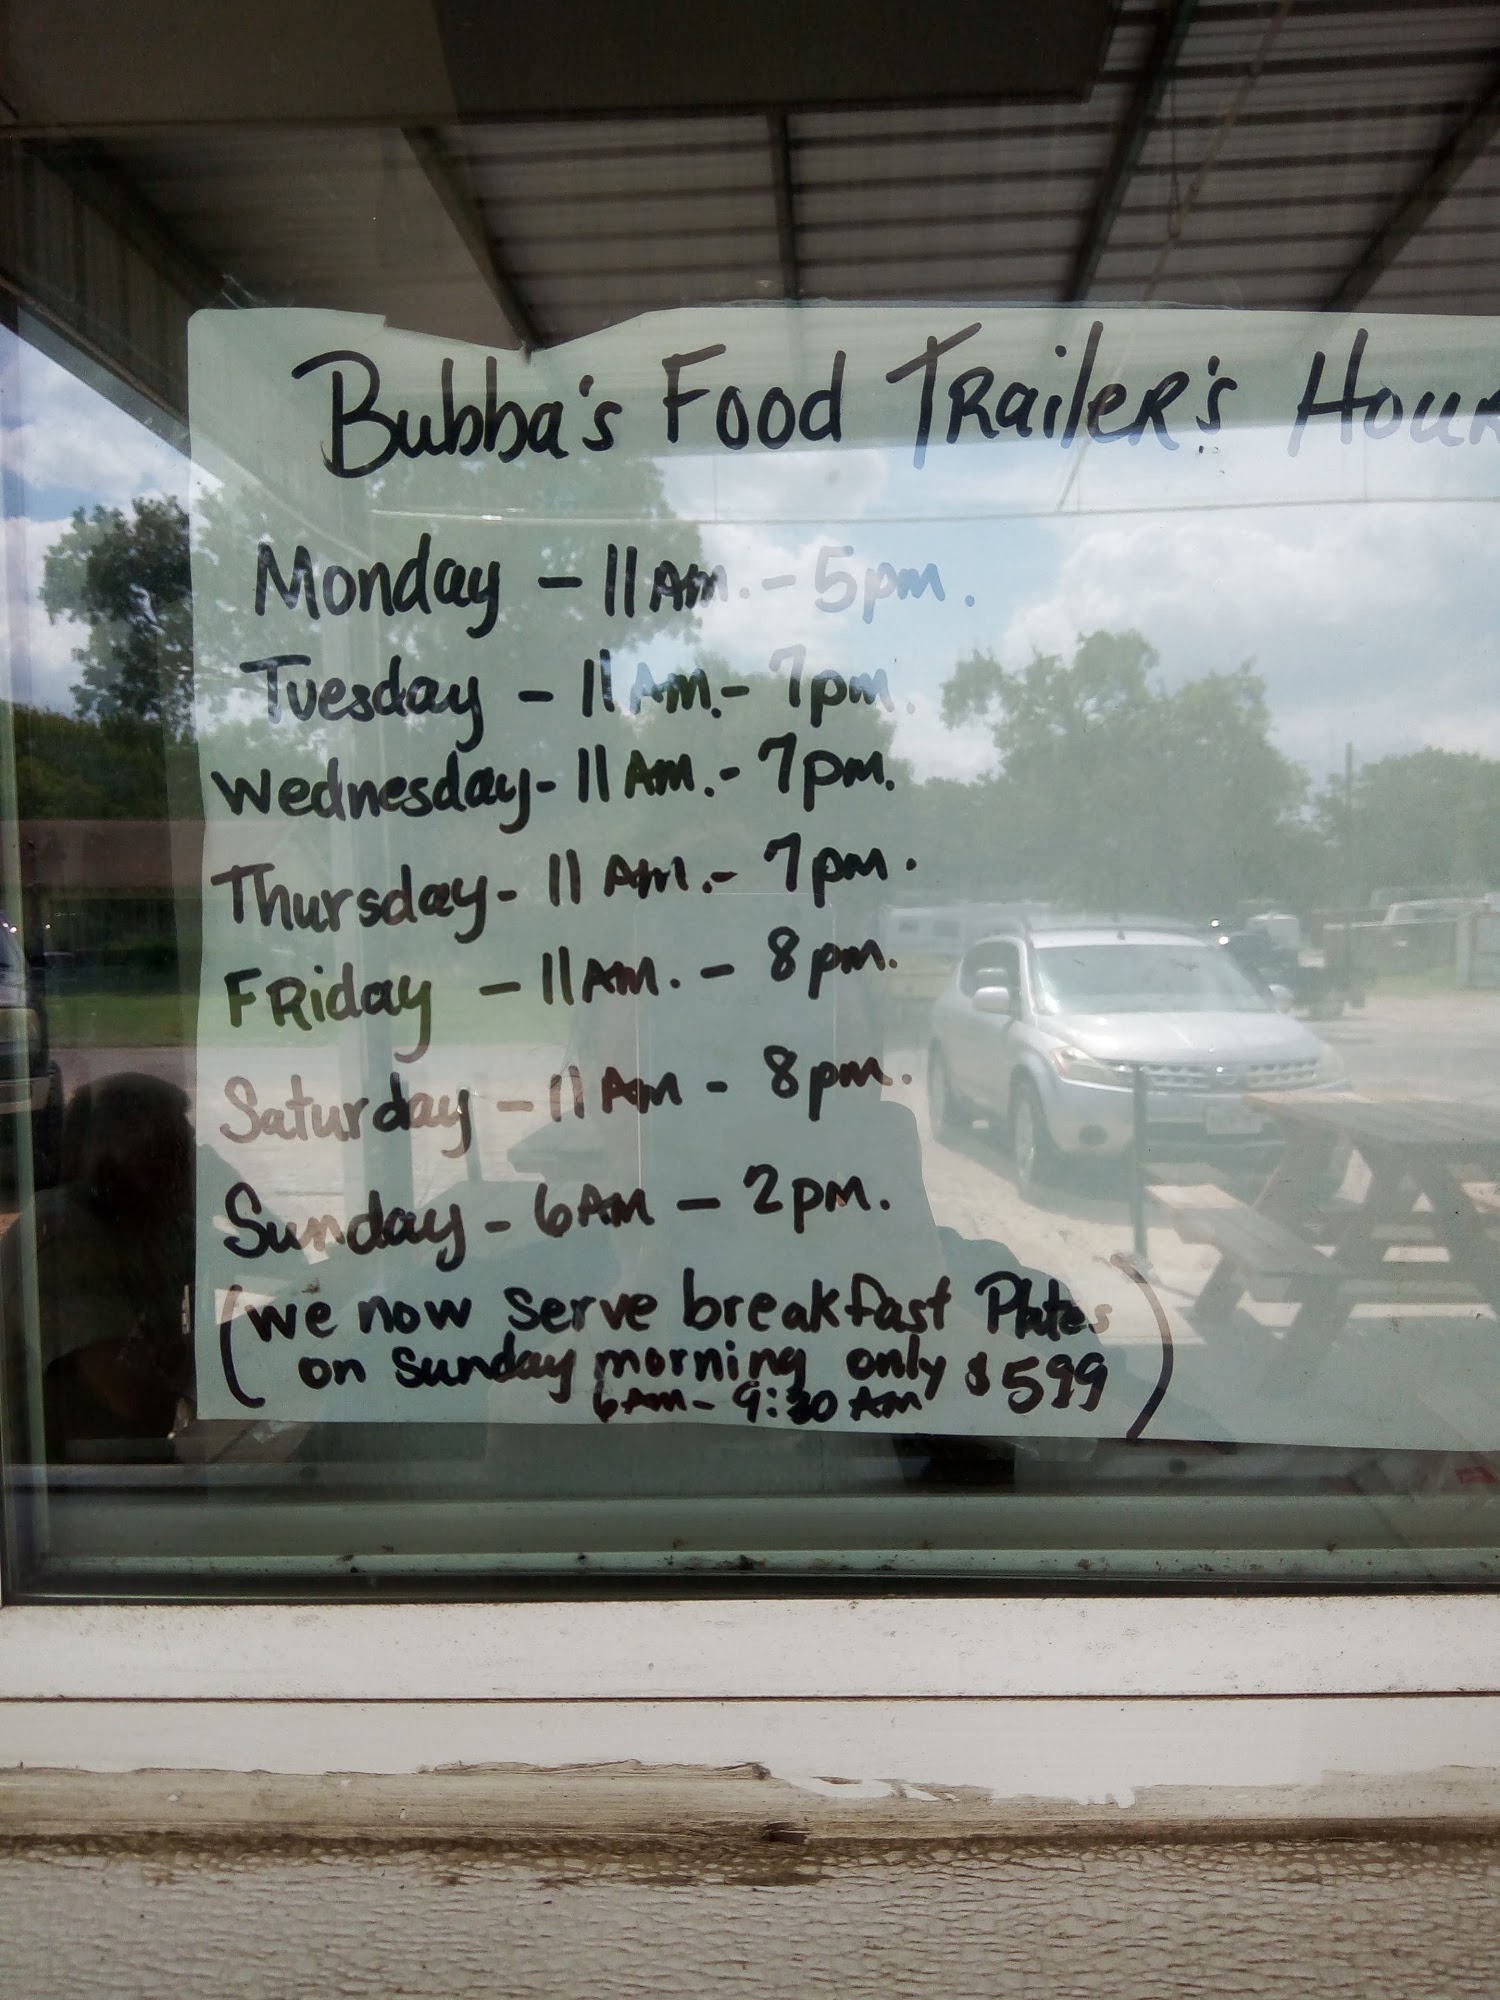 Bubba's Food Trailer's Hour
Monday - 11 Am. - 5pm.
Tuesday - 11 Am. - 7pm.
Wednesday - 11 Am. - 7pm.
Thursday - 11 Am. - 7pm.
Friday - 11 Am. - 8pm.
Saturday - 11 Am - 8pm.
Sunday - 6Am - 2pm.
(we now serve breakfast Plates
on Sunday morning only $599)
6Am - 9:30 Am